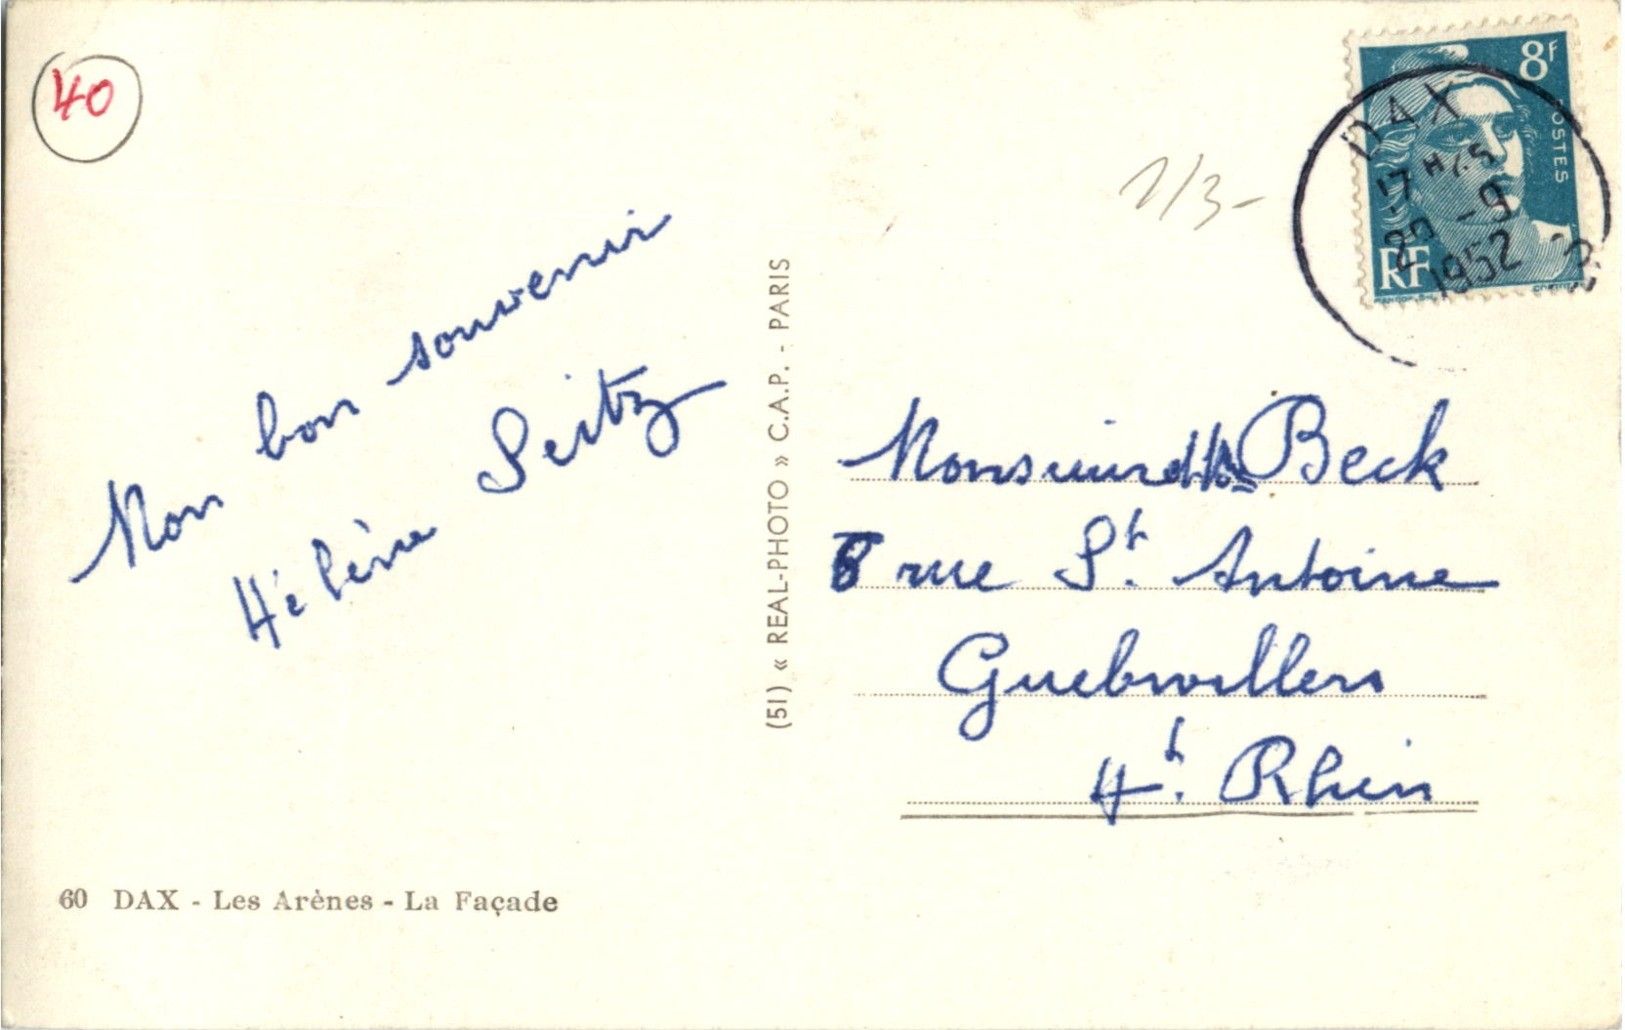 40
Mon bon souvenir
Hélène Seitz
60 DAX - Les Arènes - La Façade
(51) « REAL-PHOTO » C.A.P. - PARIS
8F
POSTES
RF
DAX
17 H
25 -9
1952
Beck
rue St. Antoine
Guebwiller
Ht. Rhin